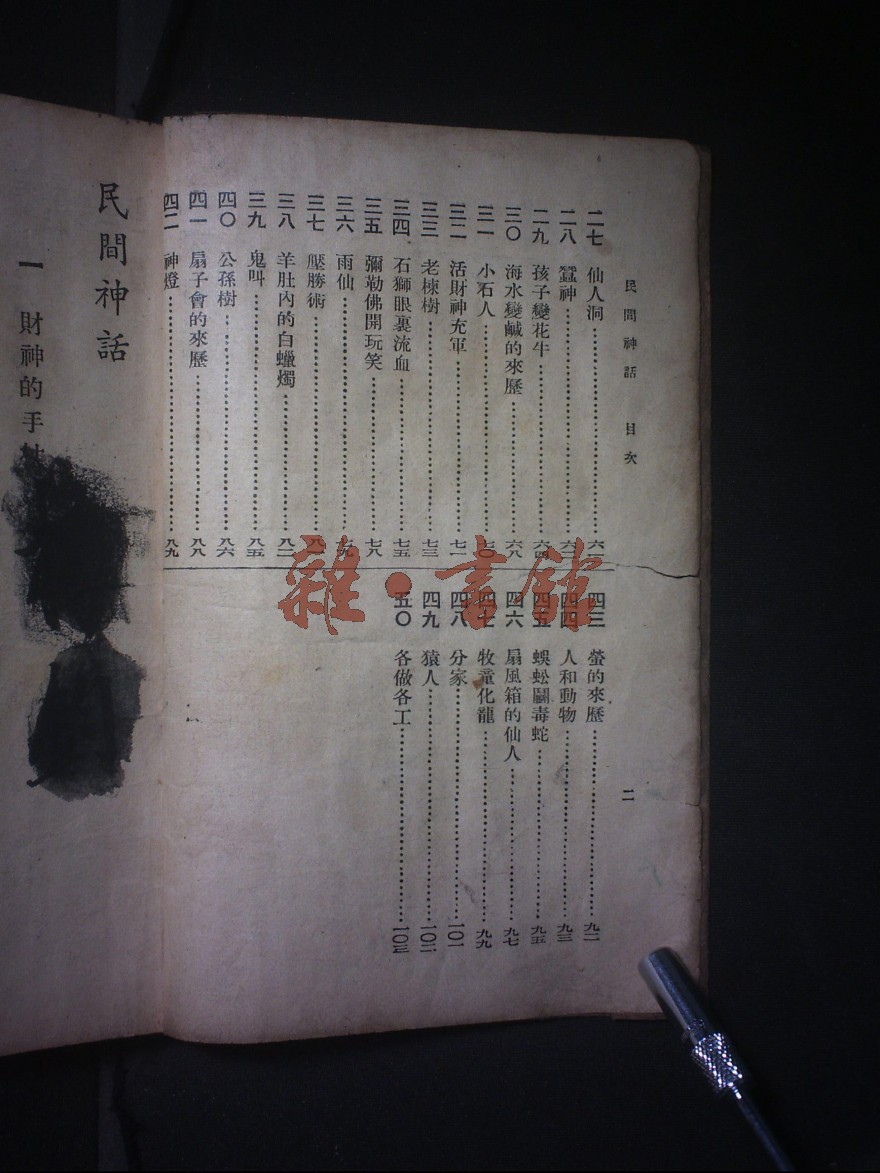 民間神話 目次
二
二七 仙人洞
二八 蠶神
二九 孩子變花牛
三〇 海水變鹹的來歷 六八
三一 小石人
三二 活財神充軍 七一
三三 老楝樹 七三
三四 石獅眼裏流血 七五
三五 彌勒佛開玩笑 七八
三六 雨仙
三七 壓勝術
三八 羊肚內的白蠟燭 八二
三九 鬼叫 八五
四〇 公孫樹 八六
四一 扇子會的來歷 八八
四二 神燈 八九
四三 螢的來歷 九二
四四 人和動物 九三
四五 蜈蚣鬭毒蛇 九五
四六 扇風箱的仙人 九七
四七 牧童化龍 九九
四八 分家 一〇一
四九 猿人 一〇二
五〇 各做各工 一〇三
民間神話
一 財神的手
雜·書館